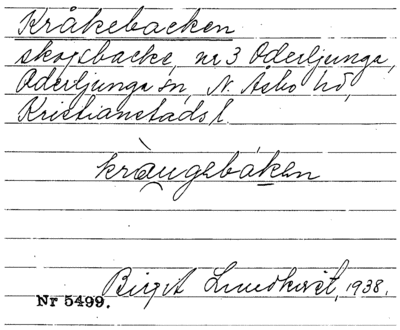 Kråkebacken
skogsbacke, nr 3 Oderljunga,
Oderljunga sn, N. Åsbo hd,
Kristianstads l.
kràugebáken
Birgit Lundkvist, 1938.
Nr 5499.